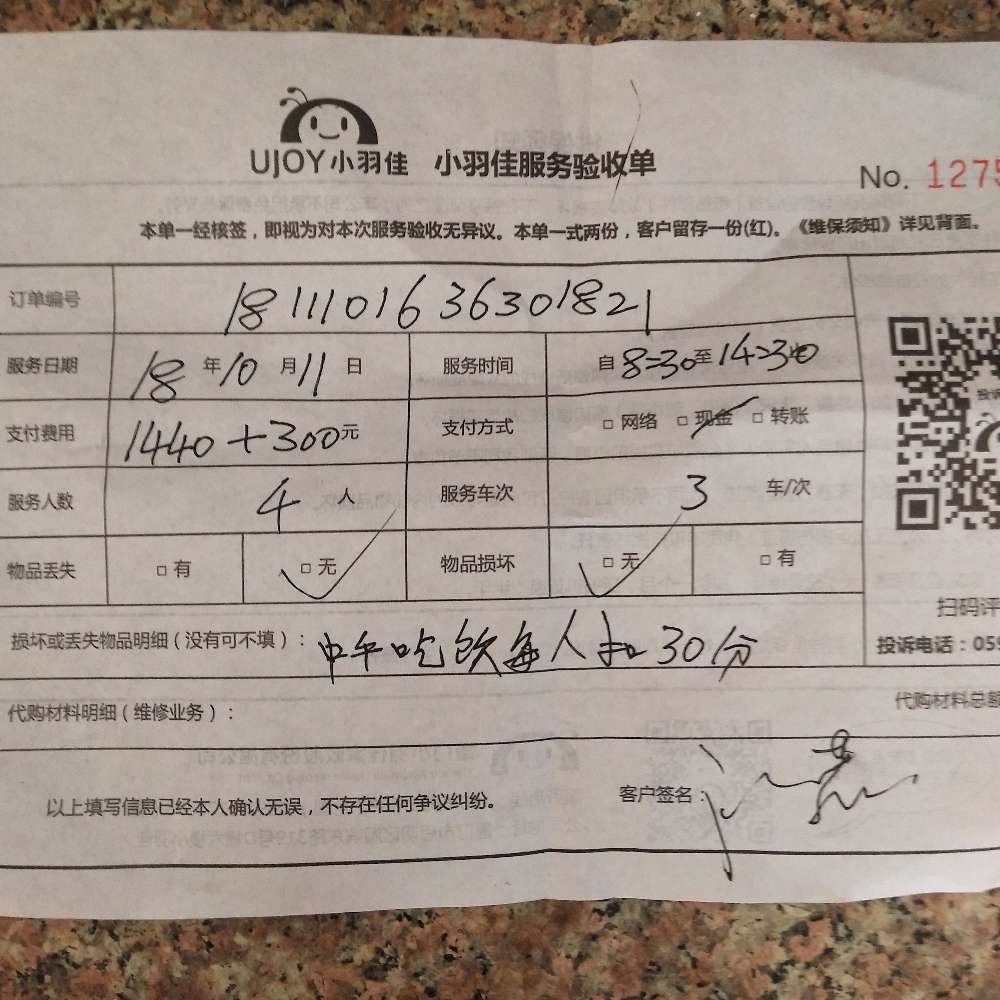 UJOY小羽佳 小羽佳服务验收单
No. 1275
本单一经核签，即视为对本次服务验收无异议。本单一式两份，客户留存一份(红)。《维保须知》详见背面。
订单编号 1811101636301821
服务日期 18年10月11日 服务时间 自8:30至14:30
支付费用 1440+300元 支付方式 □网络 □现金 □转账
服务人数 4人 服务车次 3车/次
物品丢失 □有 □无 物品损坏 □无 □有
扫码评
损坏或丢失物品明细（没有可不填）：中午吃饭每人扣30分
投诉电话：059
代购材料明细（维修业务）：
代购材料总额
以上填写信息已经本人确认无误，不存在任何争议纠纷。 客户签名：